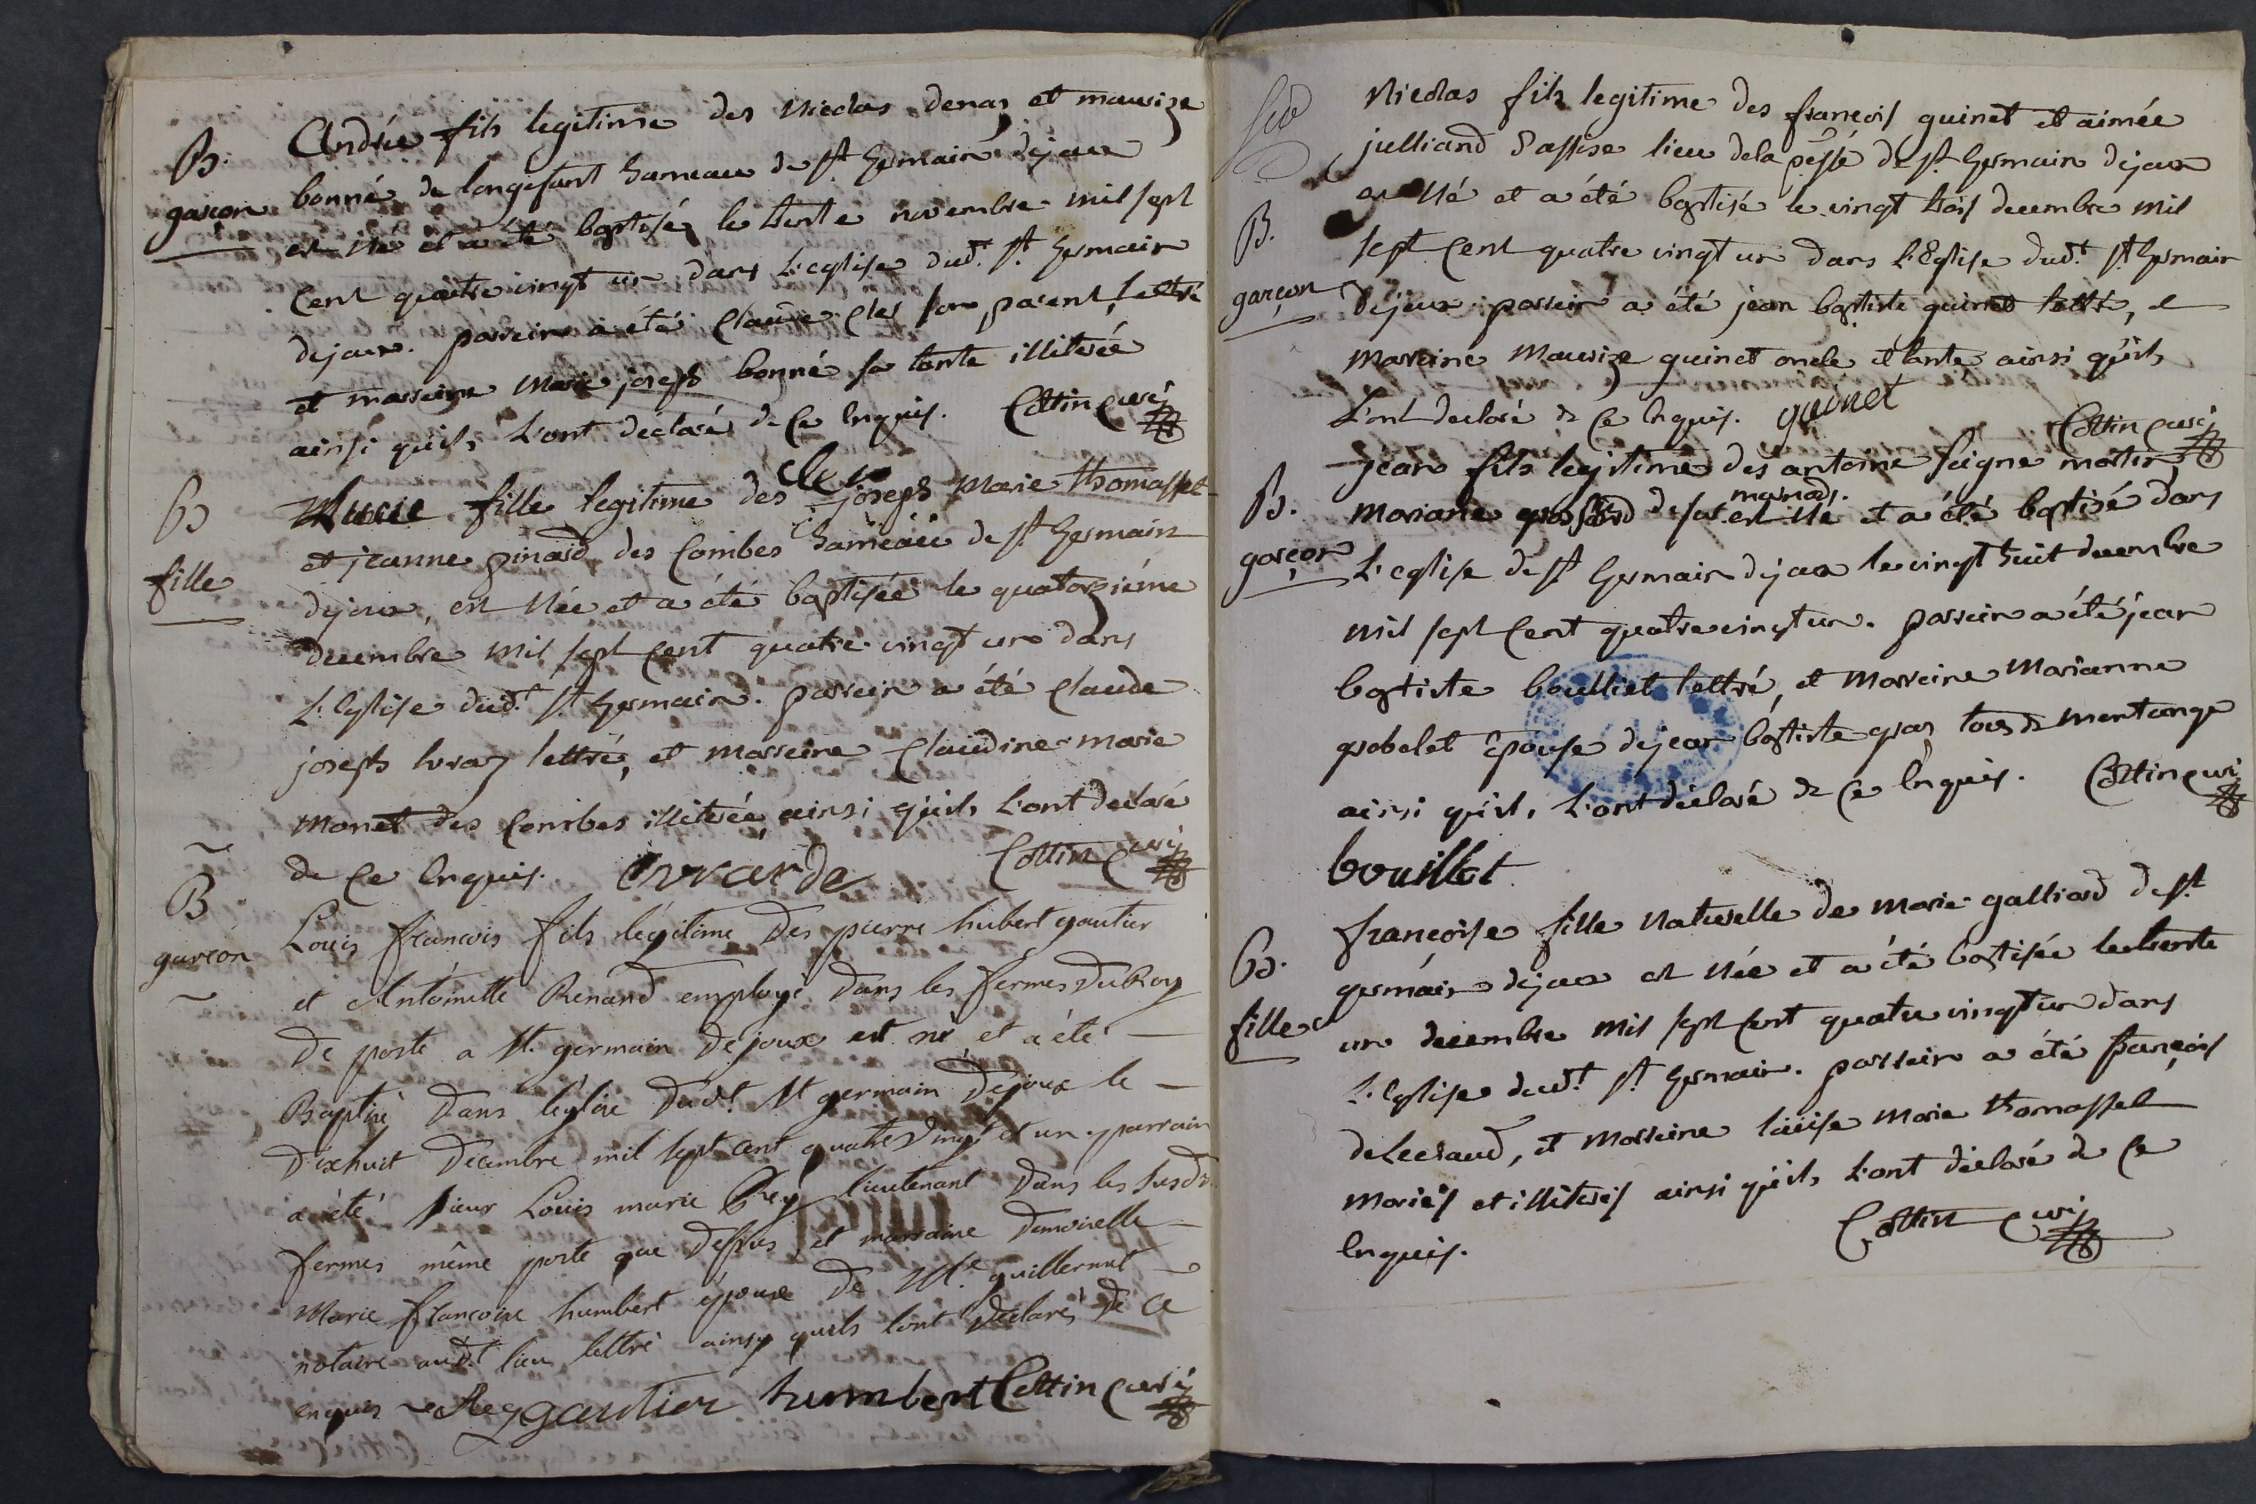 B.
garçon
André fils legitime des Nicolas denaz et maurize
bonné de longefant hameau de St Germain dejoux
est né et a été baptisé le trente novembre mil sept
Cent quatre vingt un dans L'eglise dud.t St Germain
dejoux. parrein a été Claude clet son parent lettré
et marreine Marie joseph bonné sa tante illiterée
ainsi qu'ils L'ont declaré de Ce Enquis. Cottin curé
B
fille
clet
Marie fille legitime des joseph Marie thomasset
et jeanne pinard des Combes hameau de St Germain
dejoux, est Née et a été baptisée le quatorzieme
decembre Mil sept Cent quatre vingt un dans
L'Eglise dud.t St Germain. parrein a été Claude
joseph Evraz lettré, et Marreine Claudine Marie
Monet des Combes illiterée ainsi qu'ils L'ont declaré
de Ce Enquis. Evrarde Cottin Curé
B
garcon
Louis francois fils légitime Des pierre hubert gautier
et Antoinette Renand employé Dans les fermes Du Roy
De poste a St. germain De joux est né et a été
Baptisé Dans l'église Dud.t St germain Dejoux le
Dixhuit Décembre mil sept cent quatre Vingt et un. parrain
a été sieur Louis marie Rey lieutenant Dans les susd.
fermes même poste que Dessus, et marraine Demoiselle
Marie francoise humbert épouse De M.e guillermet
notaire aud.t lieu lettré ainsy quils l'ont Déclarés De Ce
enquis Rey gautier humbert Cottin Curé
B.
garçon
Nicolas fils legitime des françois quinet et aimée
julliand d'assise lieu de la psse de St Germain dejoux
est Né et a été baptisé le vingt trois decembre Mil
sept Cent quatre vingt un dans L'Eglise dud.t St Germain
dejoux. parrein a été jean baptiste quinet lettré, et
Marreine Maurize quinet oncle et tante ainsi qu'ils
L'ont declaré de Ce Enquis. quinet
Cottin curé
B.
garçon
jean fils legitime des antoine seigne martin,
mariads.
Mariane grosfard desus est Né et a été baptisé dans
L'eglise de St Germain dejoux le vingt huit decembre
Mil sept Cent quatre vingt un. parrein a été jean
baptiste boulliet lettré, et Marreine Marianne
grobelet Epouse de jean baptiste gras tous de montange
ainsi qu'ils L'ont déclaré de Ce Enquis. Cottin curé
bouillet
B.
fille
françoise fille Naturelle de Marie galliard de St
germain dejoux est Née et a été baptisée le trente
un decembre Mil sept Cent quatre vingt un dans
L'Eglise dud.t St Germain. parrein a été françois
deLeeraud, et Marreine Louise Marie thomasset
Mariés et illiterés ainsi qu'ils L'ont déclaré de Ce
Enquis. Cottin curé